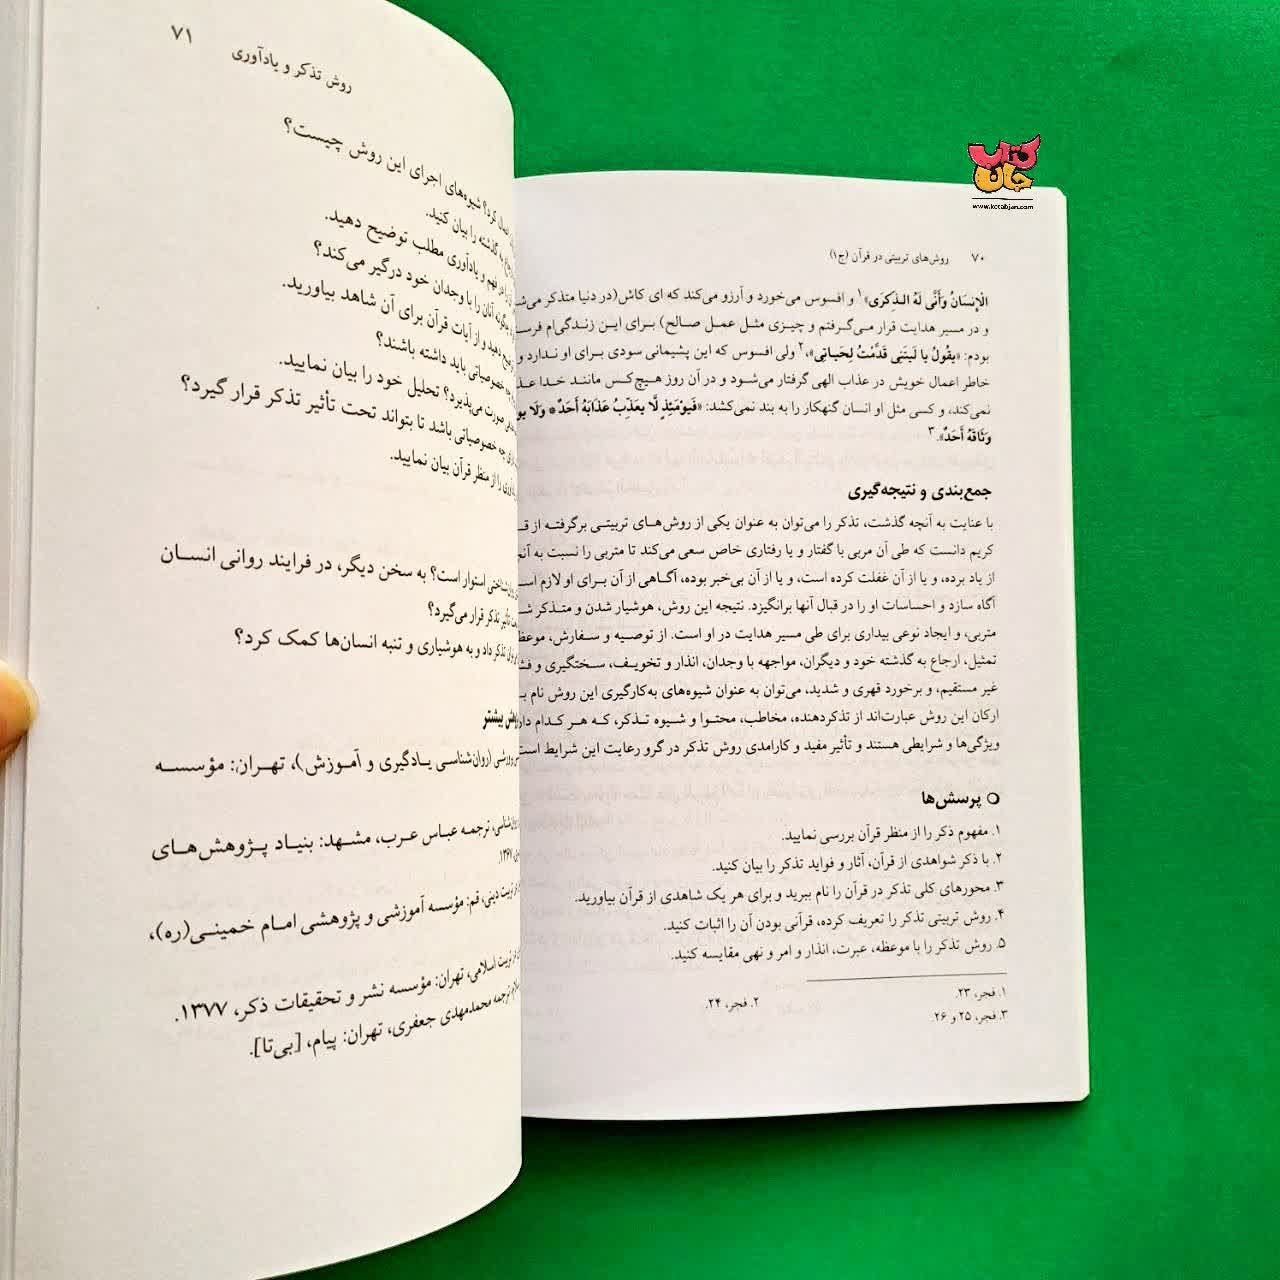 کتاب
جان
www.ketabjan.com
۷۰ روش‌های تربیتی در قرآن (ج۱)
الْإِنسَانُ وَأَنَّى لَهُ الذِّكرَى»۱ و افسوس می‌خورد و آرزو می‌کند که ای کاش(در دنیا متذکر
و در مسیر هدایت قرار می‌گرفتم و چیزی مثل عمل صالح) برای این زندگی‌ام
بودم: «يقُولُ يا لَيتَنِي قَدَّمْتُ لِحَياتِي»،۲ ولی افسوس که این پشیمانی سودی برای او ندارد و
خاطر اعمال خویش در عذاب الهی گرفتار می‌شود و در آن روز هیچ‌کس مانند خدا
نمی‌کند، و کسی مثل او انسان گنهکار را به بند نمی‌کشد: «فَيومَئِذٍ لَّا يعَذِّبُ عَذَابَهُ أَحَدٌ* وَلَا
وَثَاقَهُ أَحَدٌ».۳
جمع‌بندی و نتیجه‌گیری
با عنایت به آنچه گذشت، تذکر را می‌توان به عنوان یکی از روش‌های تربیتی برگرفته از
کریم دانست که طی آن مربی با گفتار و یا رفتاری خاص سعی می‌کند تا متربی را نسبت به
از یاد برده، و یا از آن غفلت کرده است، و یا از آن بی‌خبر بوده، آگاهی از آن برای او لازم
آگاه سازد و احساسات او را در قبال آنها برانگیزد. نتیجه این روش، هوشیار شدن و متذکر
متربی، و ایجاد نوعی بیداری برای طی مسیر هدایت در او است. از توصیه و سفارش،
تمثیل، ارجاع به گذشته خود و دیگران، مواجهه با وجدان، انذار و تخویف، سختگیری و
غیر مستقیم، و برخورد قهری و شدید، می‌توان به عنوان شیوه‌های به‌کارگیری این روش نام
ارکان این روش عبارت‌اند از تذکردهنده، مخاطب، محتوا و شیوه تذکر، که هر کدام
ویژگی‌ها و شرایطی هستند و تأثیر مفید و کارامدی روش تذکر در گرو رعایت این شرایط
○ پرسش‌ها
۱. مفهوم ذکر را از منظر قرآن بررسی نمایید.
۲. با ذکر شواهدی از قرآن، آثار و فواید تذکر را بیان کنید.
۳. محورهای کلی تذکر در قرآن را نام ببرید و برای هر یک شاهدی از قرآن بیاورید.
۴. روش تربیتی تذکر را تعریف کرده، قرآنی بودن آن را اثبات کنید.
۵. روش تذکر را با موعظه، عبرت، انذار و امر و نهی مقایسه کنید.
۱. فجر، ۲۳. ۲. فجر، ۲۴.
۳. فجر، ۲۵ و ۲۶.
روش تذکر و یادآوری ۷۱
کرد؟ شیوه‌های اجرای این روش چیست؟
به گذشته را بیان کنید.
در فهم و یادآوری مطلب توضیح دهید.
چگونه آنان را با وجدان خود درگیر می‌کند؟
دهید و از آیات قرآن برای آن شاهد بیاورید.
چه خصوصیاتی باید داشته باشند؟
صورت می‌پذیرد؟ تحلیل خود را بیان نمایید.
چه خصوصیاتی باشد تا بتواند تحت تأثیر تذکر قرار گیرد؟
را از منظر قرآن بیان نمایید.
استوار است؟ به سخن دیگر، در فرایند روانی انسان
تأثیر تذکر قرار می‌گیرد؟
تذکر داد و به هوشیاری و تنبه انسان‌ها کمک کرد؟
بیشتر
(روان‌شناسی یادگیری و آموزش)، تهران: مؤسسه
ترجمه عباس عرب، مشهد: بنیاد پژوهش‌های
۱۳۶۷.
تربیت دینی، قم: مؤسسه آموزشی و پژوهشی امام خمینی(ره)،
تربیت اسلامی، تهران: مؤسسه نشر و تحقیقات ذکر، ۱۳۷۷.
ترجمه محمدمهدی جعفری، تهران: پیام، [بی‌تا].